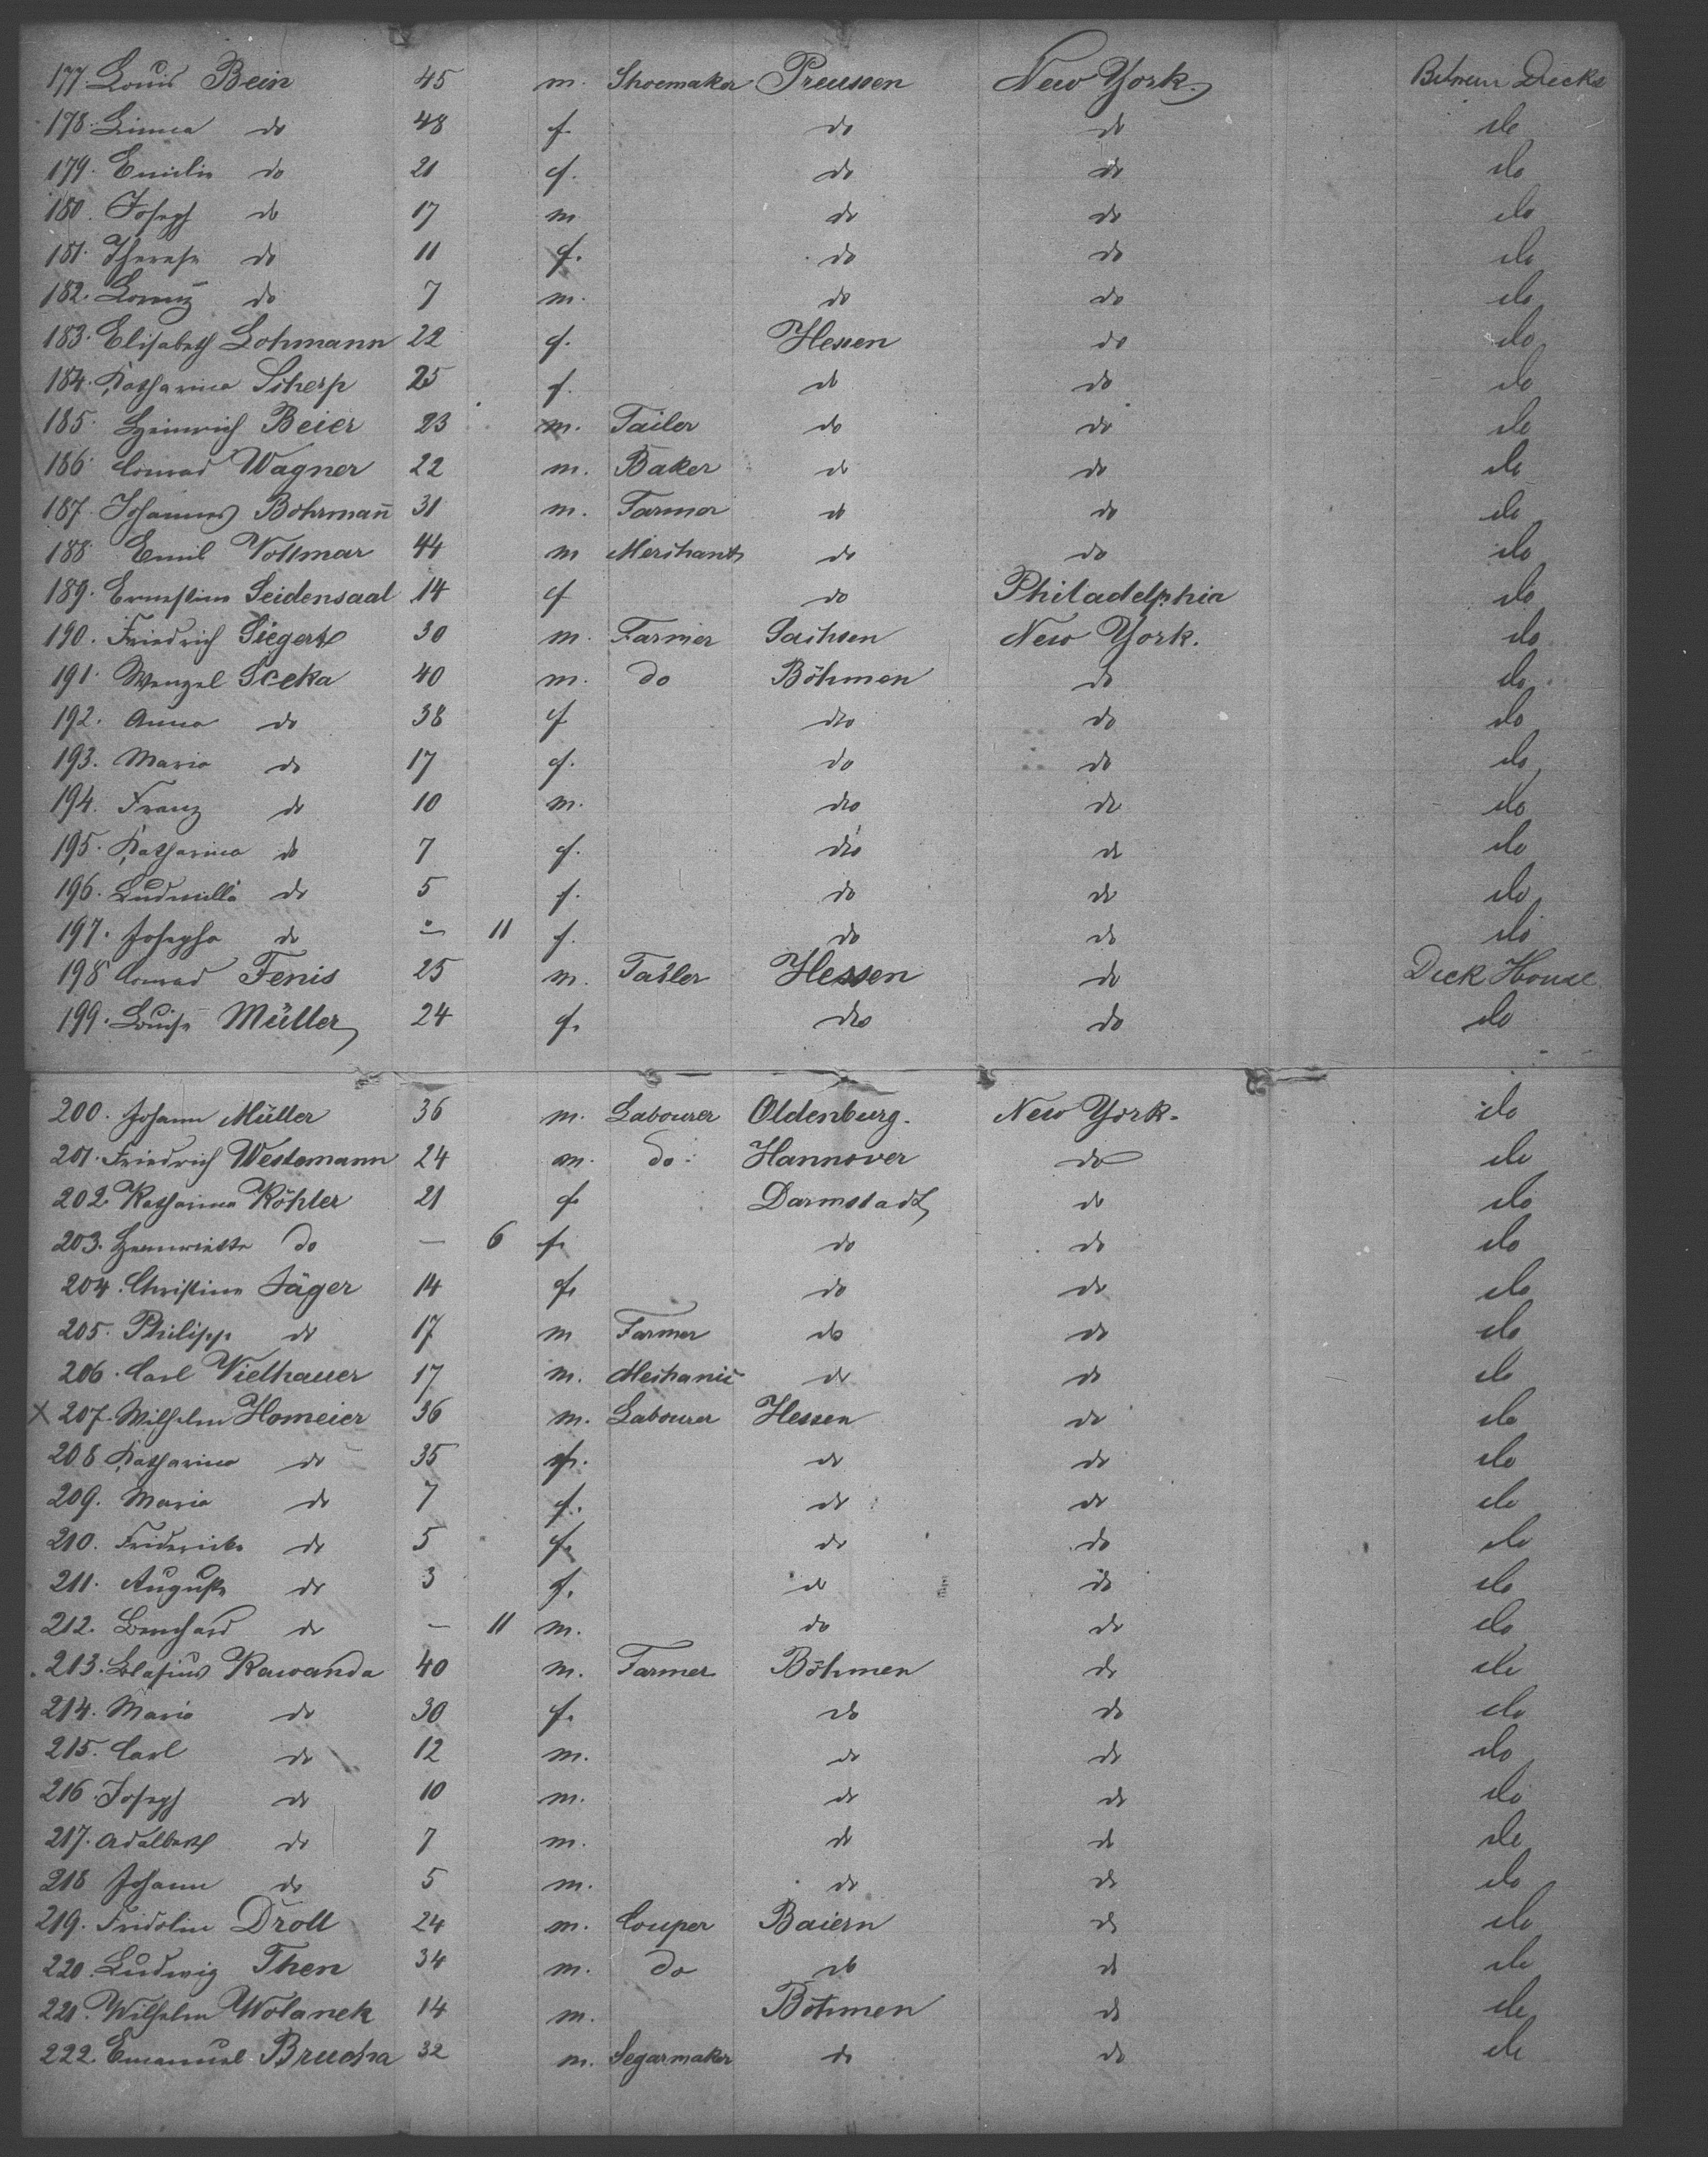 177. Louis Bein 45 m. Shoemaker Preussen New York. Between Decks
178. do 48 f. do do do
179. Emilie do 21 f. do do do
180. Joseph do 17 m do do do
181. Therese do 11 f. do do do
182. Lorenz do 7 m. do do do
183. Elisabeth Lohmann 22 f. Hessen do do
184. Katharina Scherp 25 f. do do do
185. Heinrich Beier 23 m. Tailer do do do
186. Conrad Wagner 22 m. Baker do do do
187. Johannes Bohrmañ 31 m. Farmer do do do
188. Emil Vollmar 44 m Merchant do do do
189. Ernestine Seidensaal 14 f do Philadelphia do
190. Friedrich Siegert 30 m. Farmer Sachsen New York. do
191. Wenzel Sceka 40 m. do Böhmen do do
192. Anna do 38 f do do do
193. Maria do 17 f. do do do
194. Franz do 10 m. do do do
195. Katharina do 7 f. do do do
196. Ludmilla do 5 f. do do do
197. Josepha do — 11 f. do do do
198 Conrad Fenis 25 m. Tailer Hessen do Deck House
199. Louise Müller 24 f. do do do
200. Johann Müller 36 m. Labourer Oldenburg. New York. do
201. Friedrich Westemann 24 m. do Hannover do do
202. Katharina Köhler 21 f. Darmstadt do do
203. Henriette do — 6 f. do do do
204. Christine Jäger 14 f. do do do
205. Philipp do 17 m Farmer do do do
206. Carl Vielhauer 17 m. Mechanic do do do
X 207. Wilhelm Homeier 36 m. Labourer Hessen do do
208 Katharina do 35 f. do do do
209. Maria do 7 f. do do do
210. Friderike do 5 f. do do do
211. Auguste do 3 f. do do do
212. Bernhard do — 11 m. do do do
213. Blasius Kawanda 40 m. Farmer Böhmen do do
214. Maria do 30 f. do do do
215. Carl do 12 m. do do do
216. Joseph do 10 m. do do do
217. Adalbert do 7 m. do do do
218 Johann do 5 m. do do do
219. Fridolin Droll 24 m. Couper Baiern do do
220. Ludwig Then 34 m. do do do do
221. Wilhelm Wolanek 14 m. Böhmen do do
222. Emanuel Brucha 32 m. Segarmaker do do do